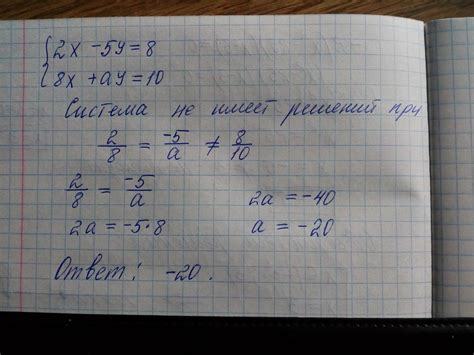 {2x - 5y = 8
{8x + ay = 10
Система не имеет решений при
2/8 = -5/a ≠ 8/10
2/8 = -5/a
2a = -5·8
2a = -40
a = -20
Ответ: -20.